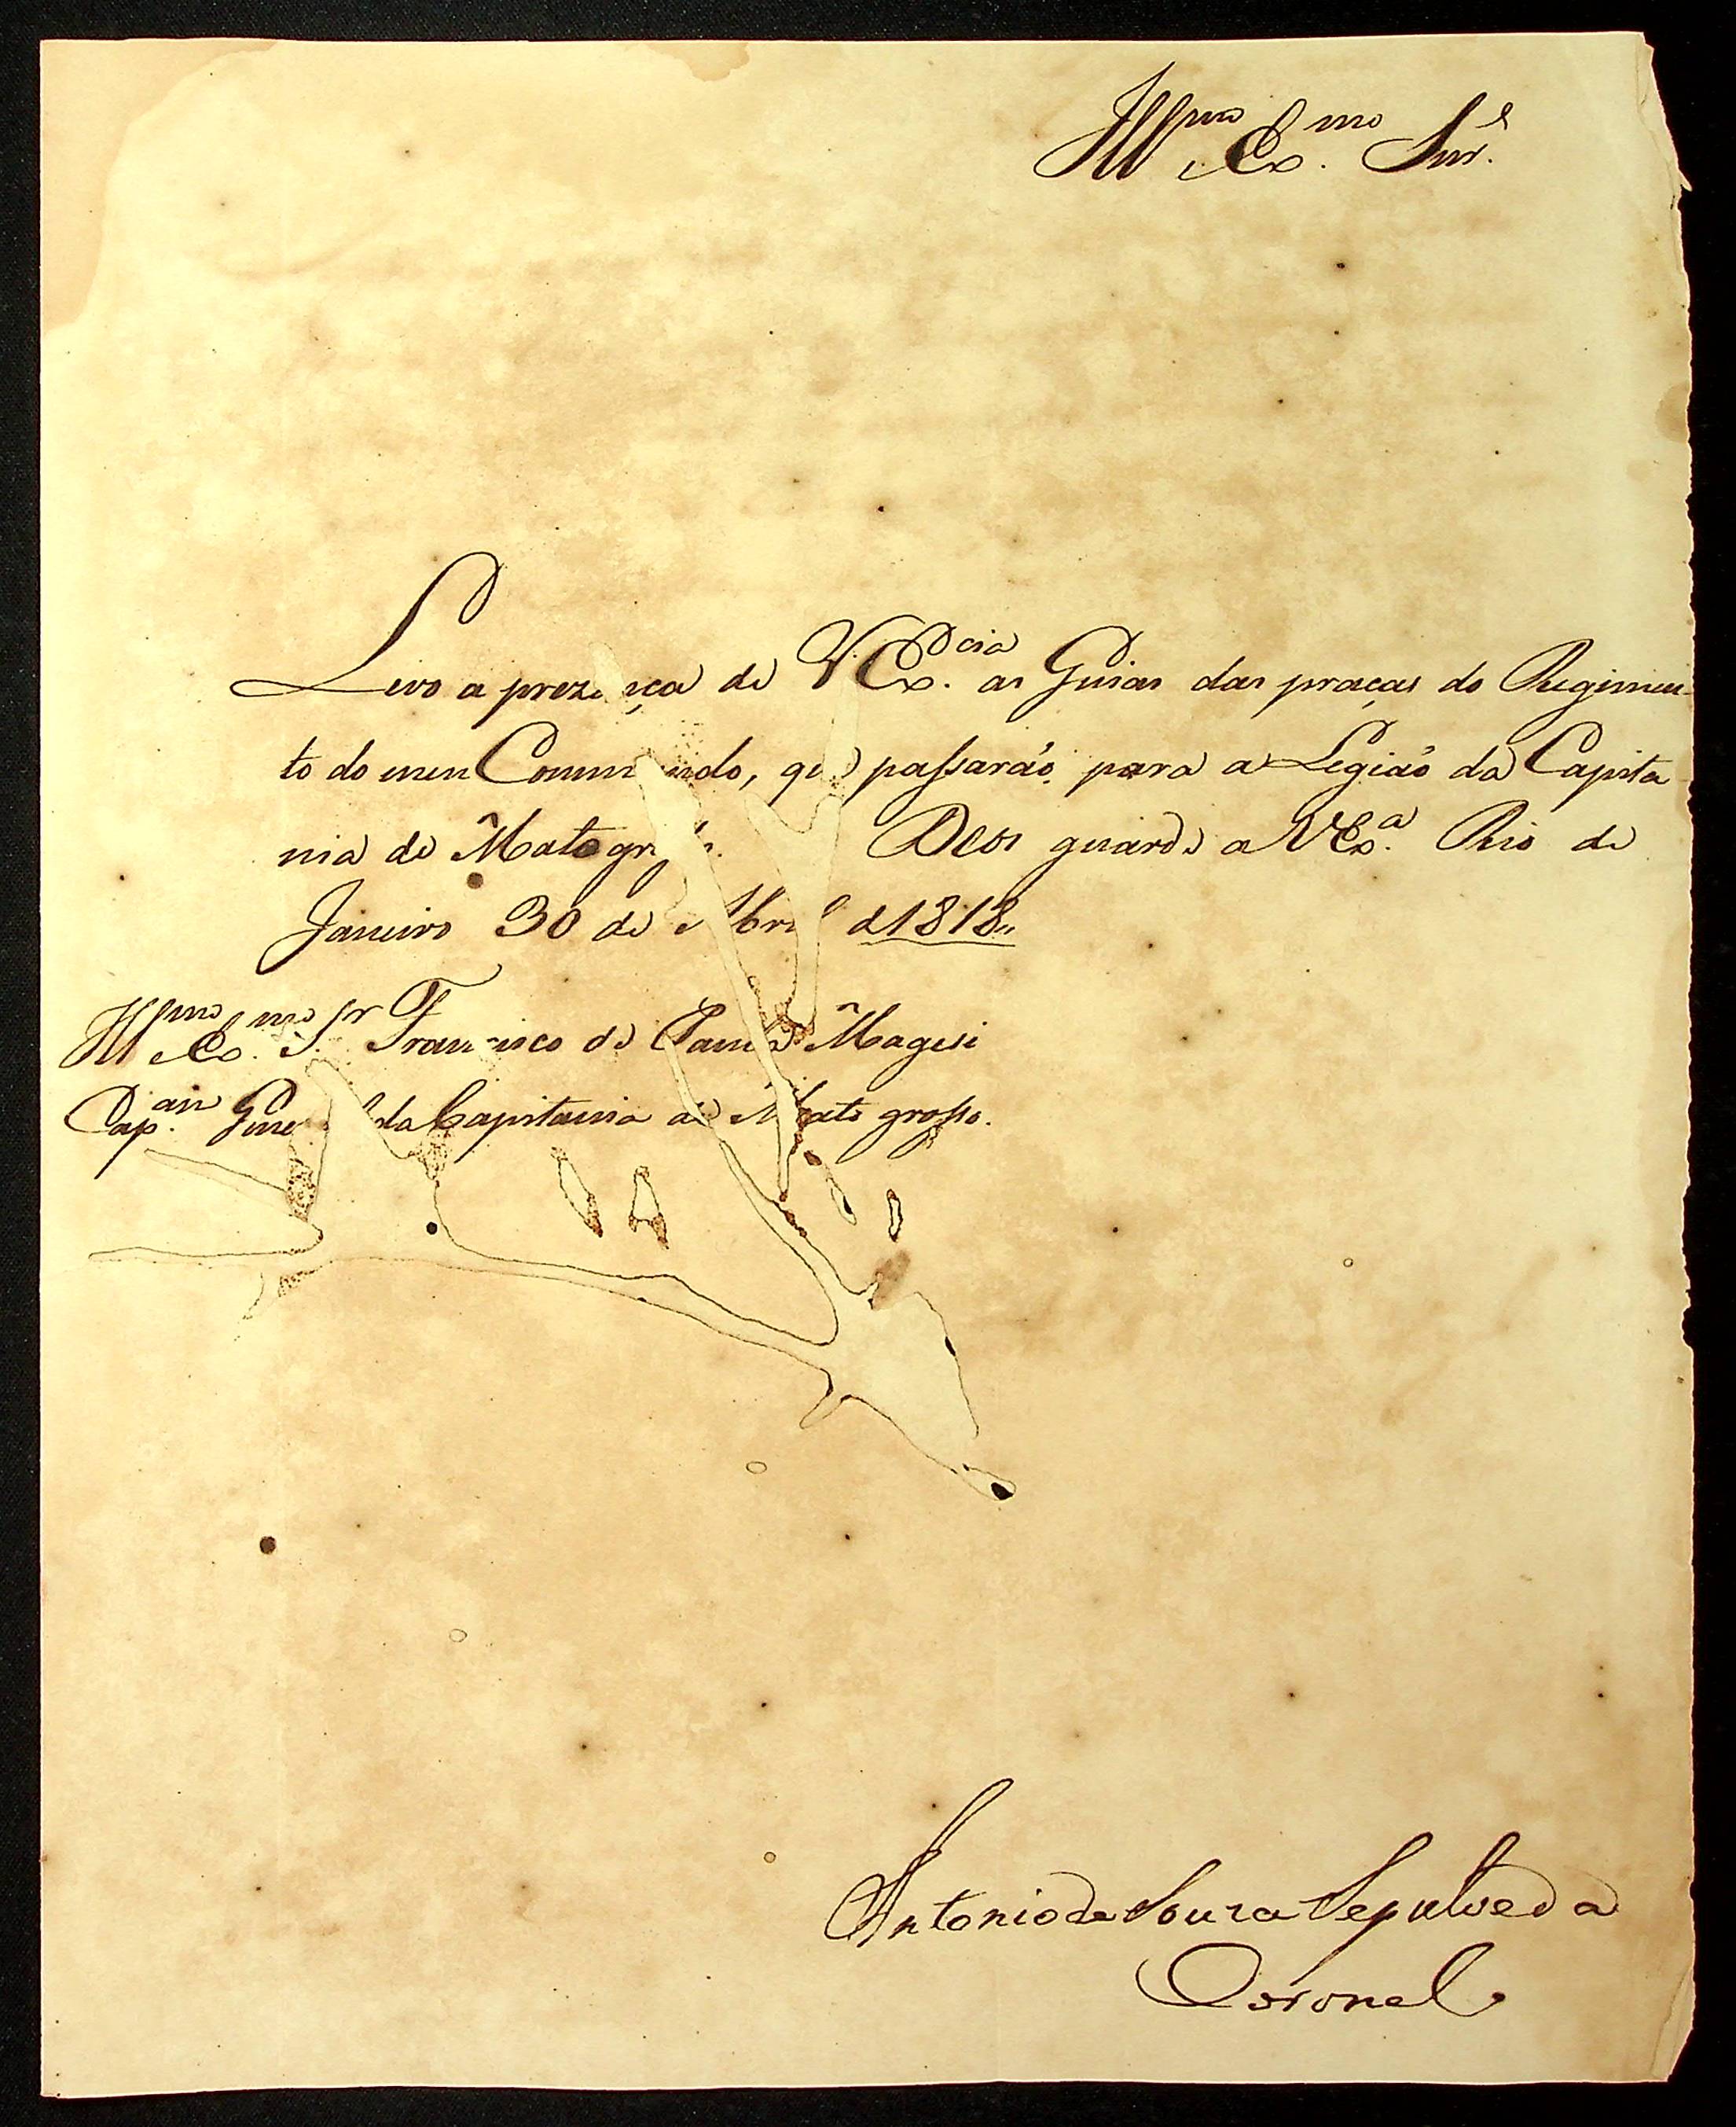 Illmo Exmo Snr.
Levo a prezença de V. Excia as Guias das praças do Regimen-
to do meu Commando, que passarão para a Legião da Capita-
nia de Mato Deos guarde a V Exa. Rio de
Janeiro 30 de Abril d 1818„
Illmo Exmo Sr Francisco de Paula Magesi
Capan. General da Capitania de Mato grosso.
Antonio de Souza Sepulveda
Coronel